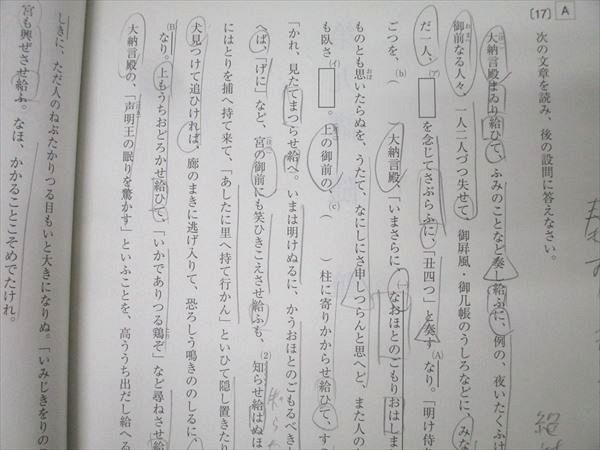 〔17〕 A
次の文章を読み、後の設問に答えなさい。
大納言殿まゐり給ひて、ふみのことなど奏し給ふに、例の、夜いたくふけ
御前なる人々、一人二人づつ失せて、御屏風・御几帳のうしろなどに、みな
だ一人、(ア)□を念じてさぶらふに、「丑四つ」と奏す(A)なり。「明け侍
ごつを、(b)( )大納言殿、「いまさらに、(一)なおほとのごもりおはしま
ものとも思いたらぬを、うたて、なにしにさ申しつらんと思へど、また人の
も臥さ(イ)□。上の御前の、(c)( )柱に寄りかからせ給ひて、す
「かれ、見たてまつらせ給へ。いまは明けぬるに、かうおほとのごもるべき
へば、「げに」など、宮の御前にも笑ひきこえさせ給ふも、(2)知らせ給はぬほ
にはとりを捕へ持て来て、「あしたに里へ持て行かん」といひて隠し置きたり
犬見つけて追ひければ、廊のまきに逃げ入りて、恐ろしう鳴きののしるに、
(B)なり。上もうちおどろかせ給ひて、「いかでありつる鶏ぞ」など尋ねさせ給
大納言殿の、「声明王の眠りを驚かす」といふことを、高ううち出だし給へる
しきに、ただ人のねぶたかりつる目もいと大きになりぬ。「いみじきをりの
宮も興ぜさせ給ふ。なほ、かかることこそめでたけれ。